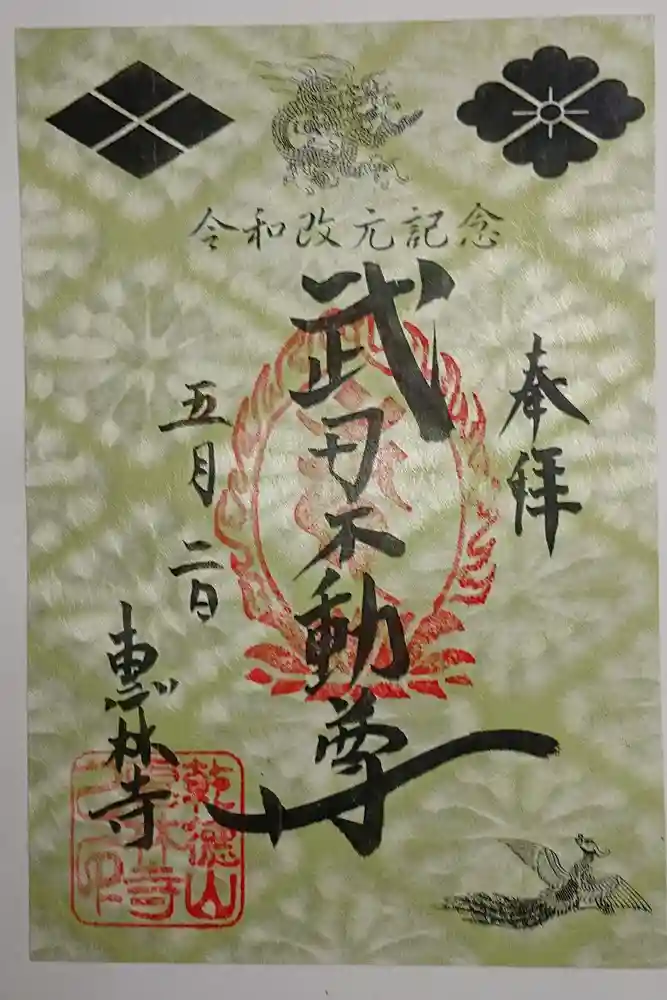 令和改元記念
奉拝
武田不動尊
五月二日
惠林寺
乾徳山
惠林寺
之印